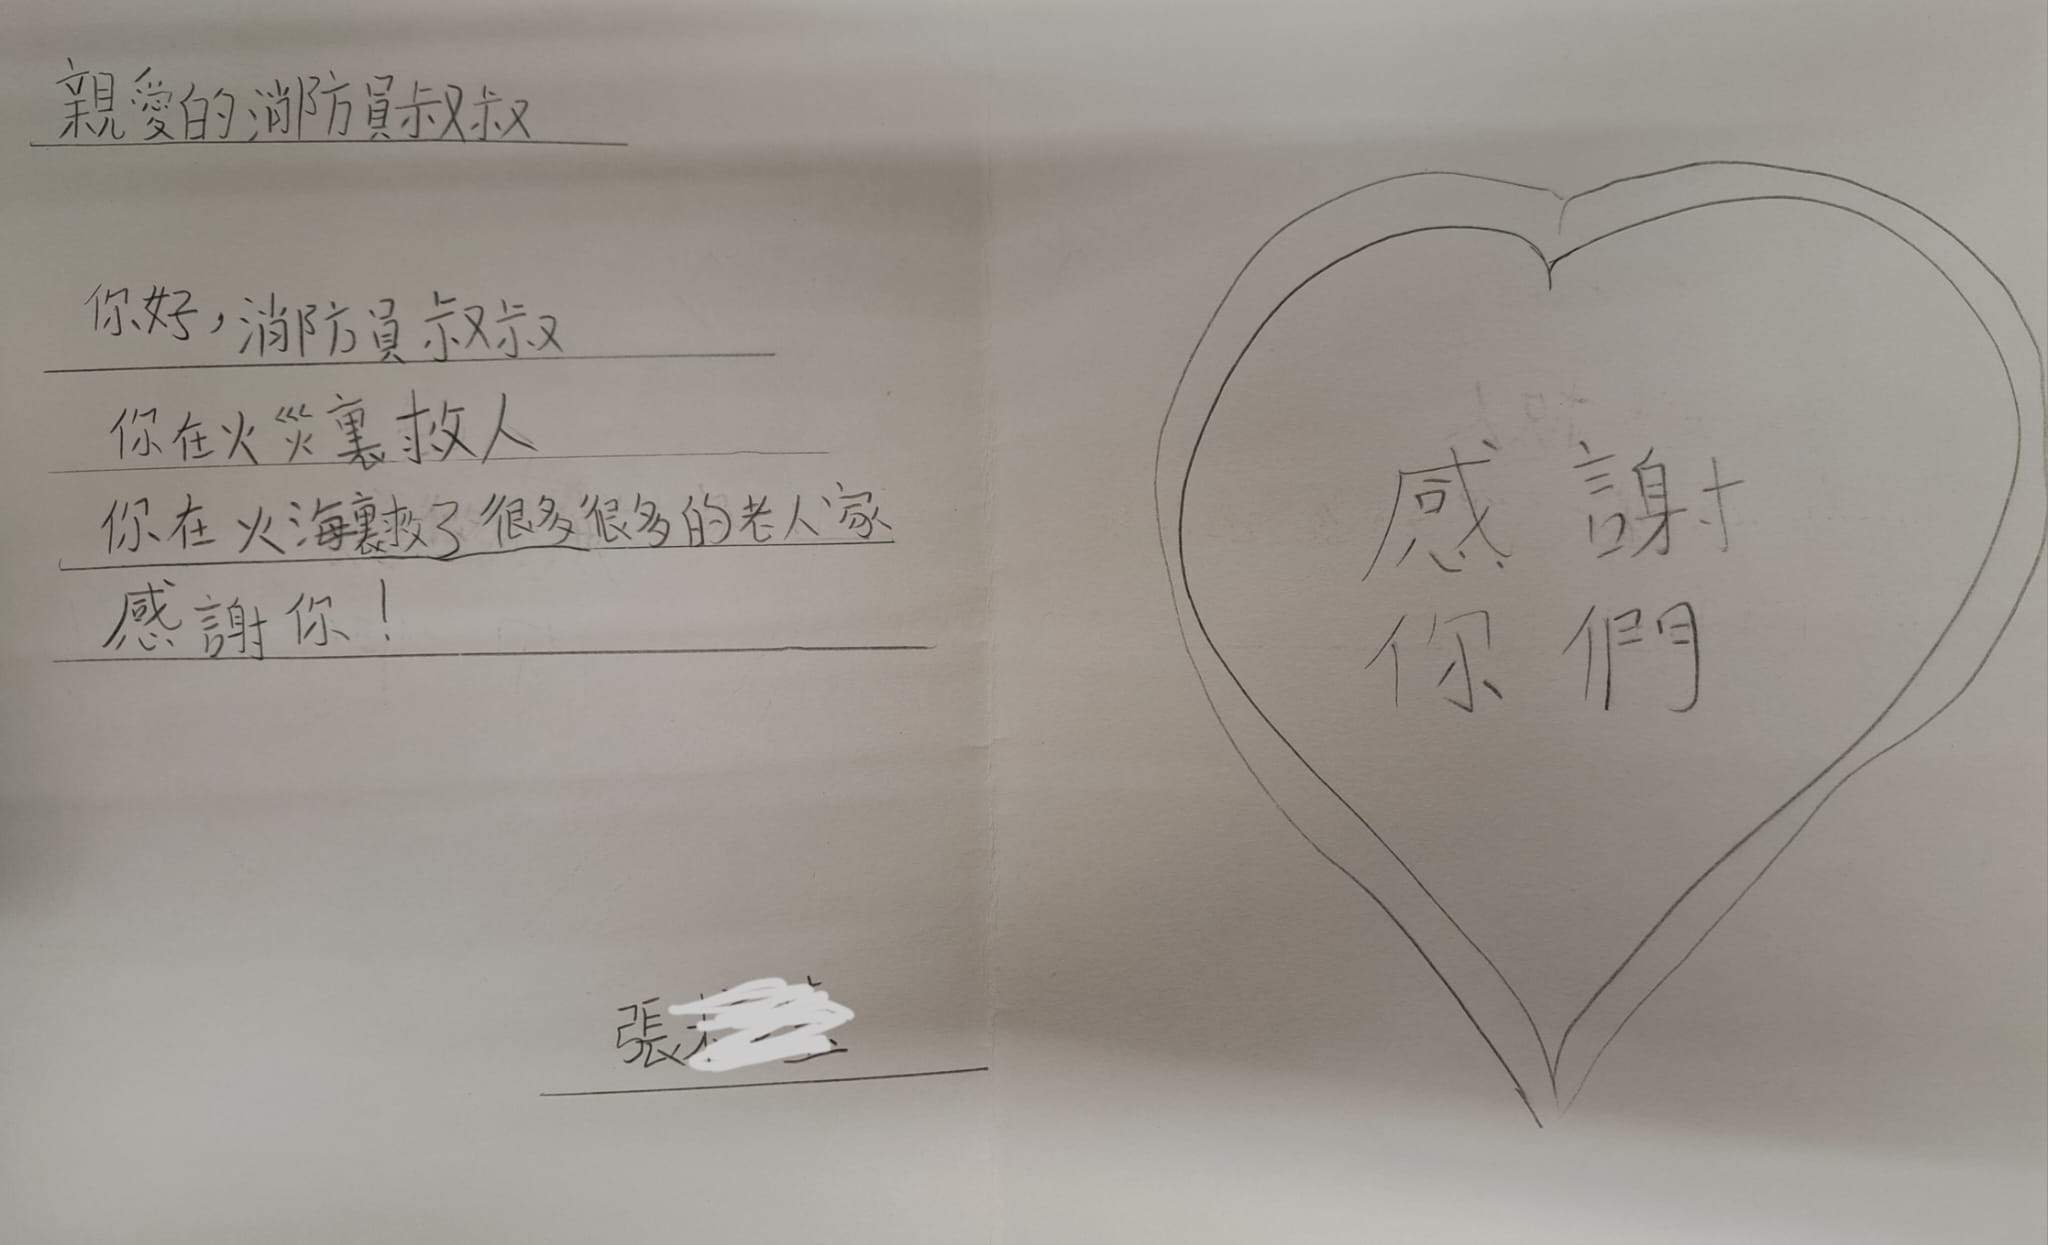 親愛的消防員叔叔
你好，消防員叔叔
你在火災裏救人
你在火海裏救了很多很多的老人家
感謝你！
張
感謝
你們